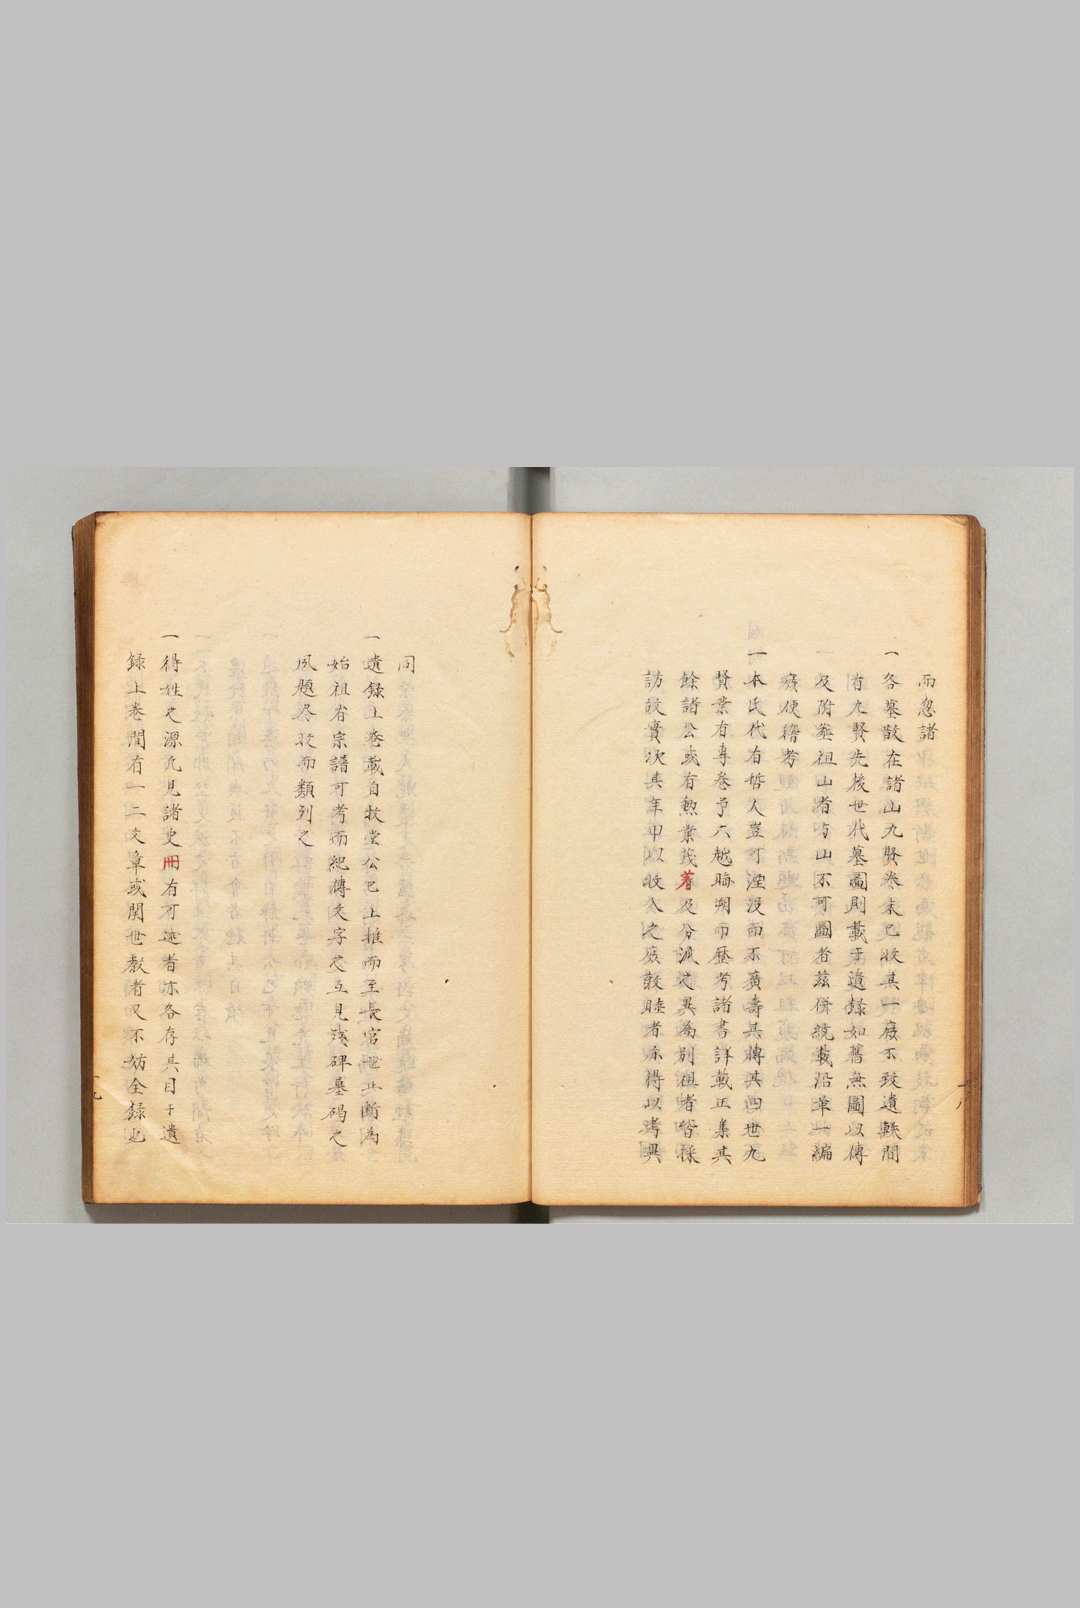 而忽諸
一各墓散在諸山九賢卷末已收其一廢不致遺軼間
有九賢先後世代墓圖則載于遺録如舊無圖以傳
及附葬祖山者古山不可圖者茲併統載沿革一編
庶使稽考
一本氏代有哲人豈可湮没而不廣壽其轉其四世九
賢業有專卷予六越晦朔而歷考諸書詳載正集其
餘諸公或有勲業茂著及分派之異為別祖者皆採
訪故實次其年甲以收入之庶敦睦者亦得以考興
同
一遺録上卷載自牧堂公已上推而至長官世此斷為
始祖者宗譜可考而紀傳文字之互見殘碑墓碣之
夙題尽收而類列之
一得姓之源凡見諸史冊有可述者亦各存其目于遺
録上卷間有一二文章或関世教者又不妨全録也
八
九